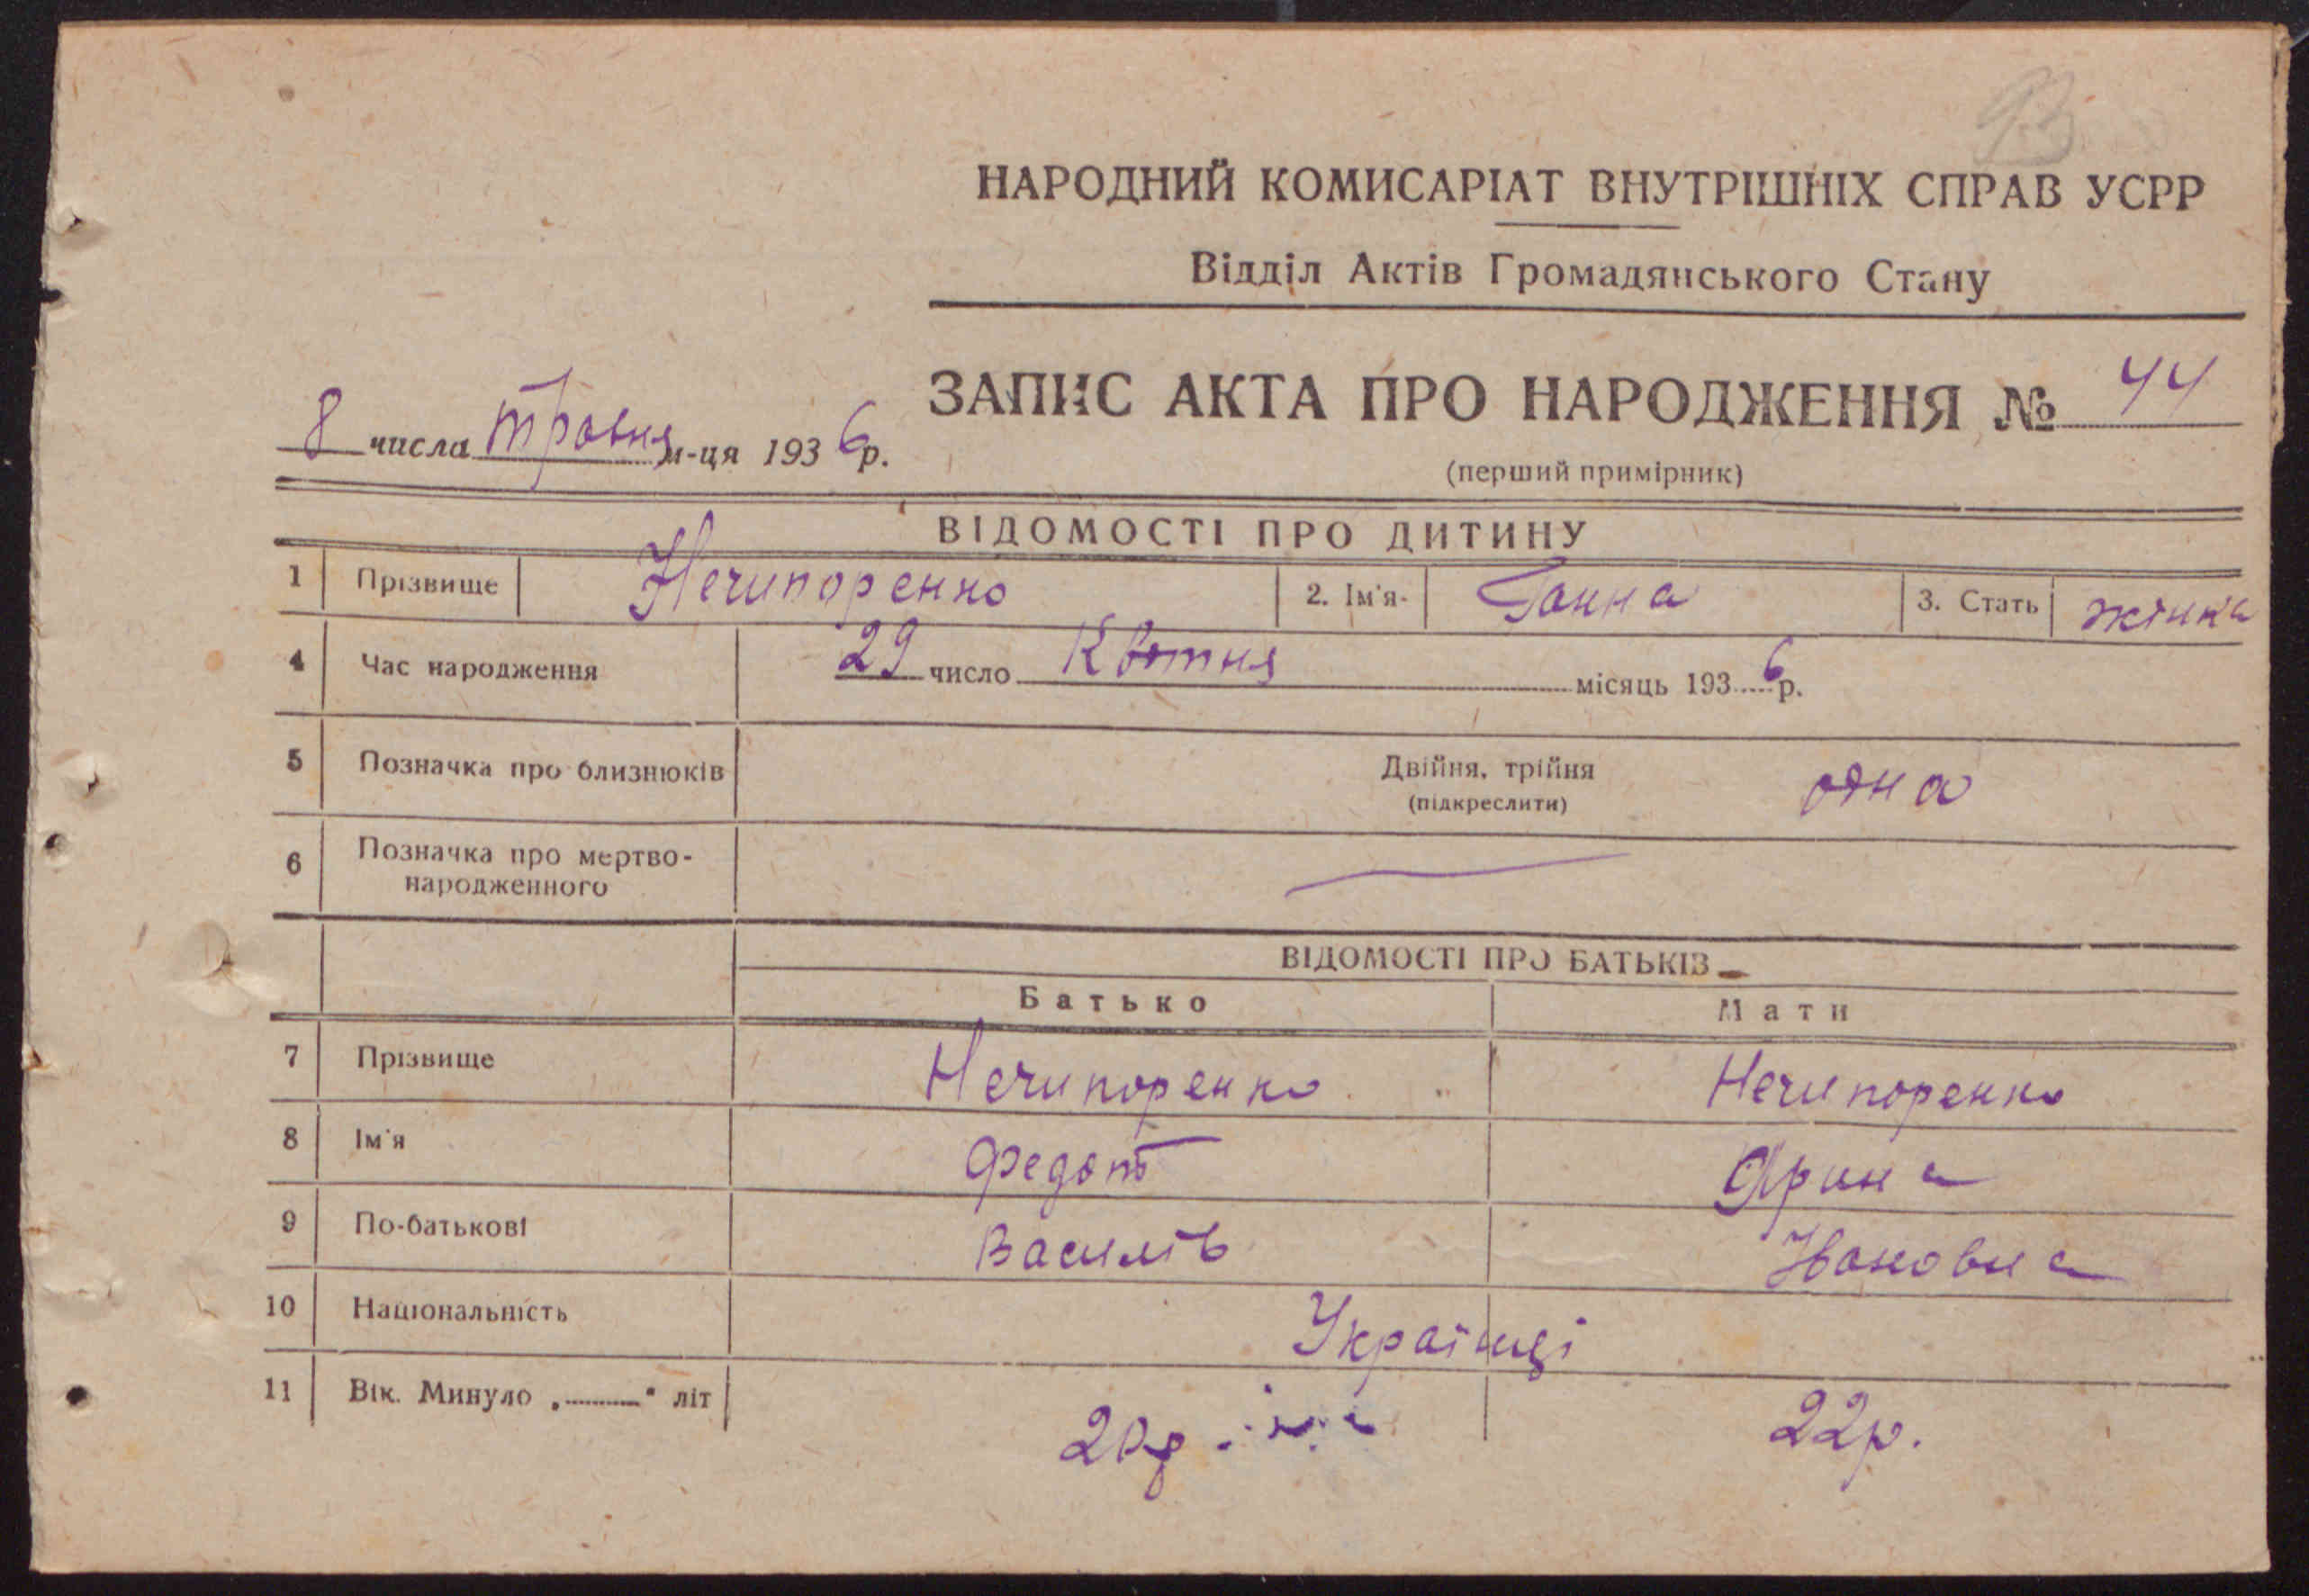 93
НАРОДНИЙ КОМИСАРІАТ ВНУТРІШНІХ СПРАВ УСРР
Відділ Актів Громадянського Стану
ЗАПИС АКТА ПРО НАРОДЖЕННЯ № 44
8 числа травня м-ця 1936 р.
(перший примірник)
ВІДОМОСТІ ПРО ДИТИНУ
1 Прізвище Нечипоренко 2. Ім'я Ганна 3. Стать жінка
4 Час народження 29 число Квітня місяць 1936 р.
5 Позначка про близнюків Двійня, трійня одна
(підкреслити)
6 Позначка про мертво-
народженного
ВІДОМОСТІ ПРО БАТЬКІВ
Батько Мати
7 Прізвище Нечипоренко Нечипоренко
8 Ім'я Федот Ярина
9 По-батькові Василів Івановна
10 Національність Українці
11 Вік. Минуло „ “ літ 20р 22р.